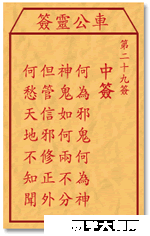 車公靈簽
第二十九簽
中簽
何為邪鬼何為神
神鬼如何兩不分
但管信邪修正外
何愁天地不知聞